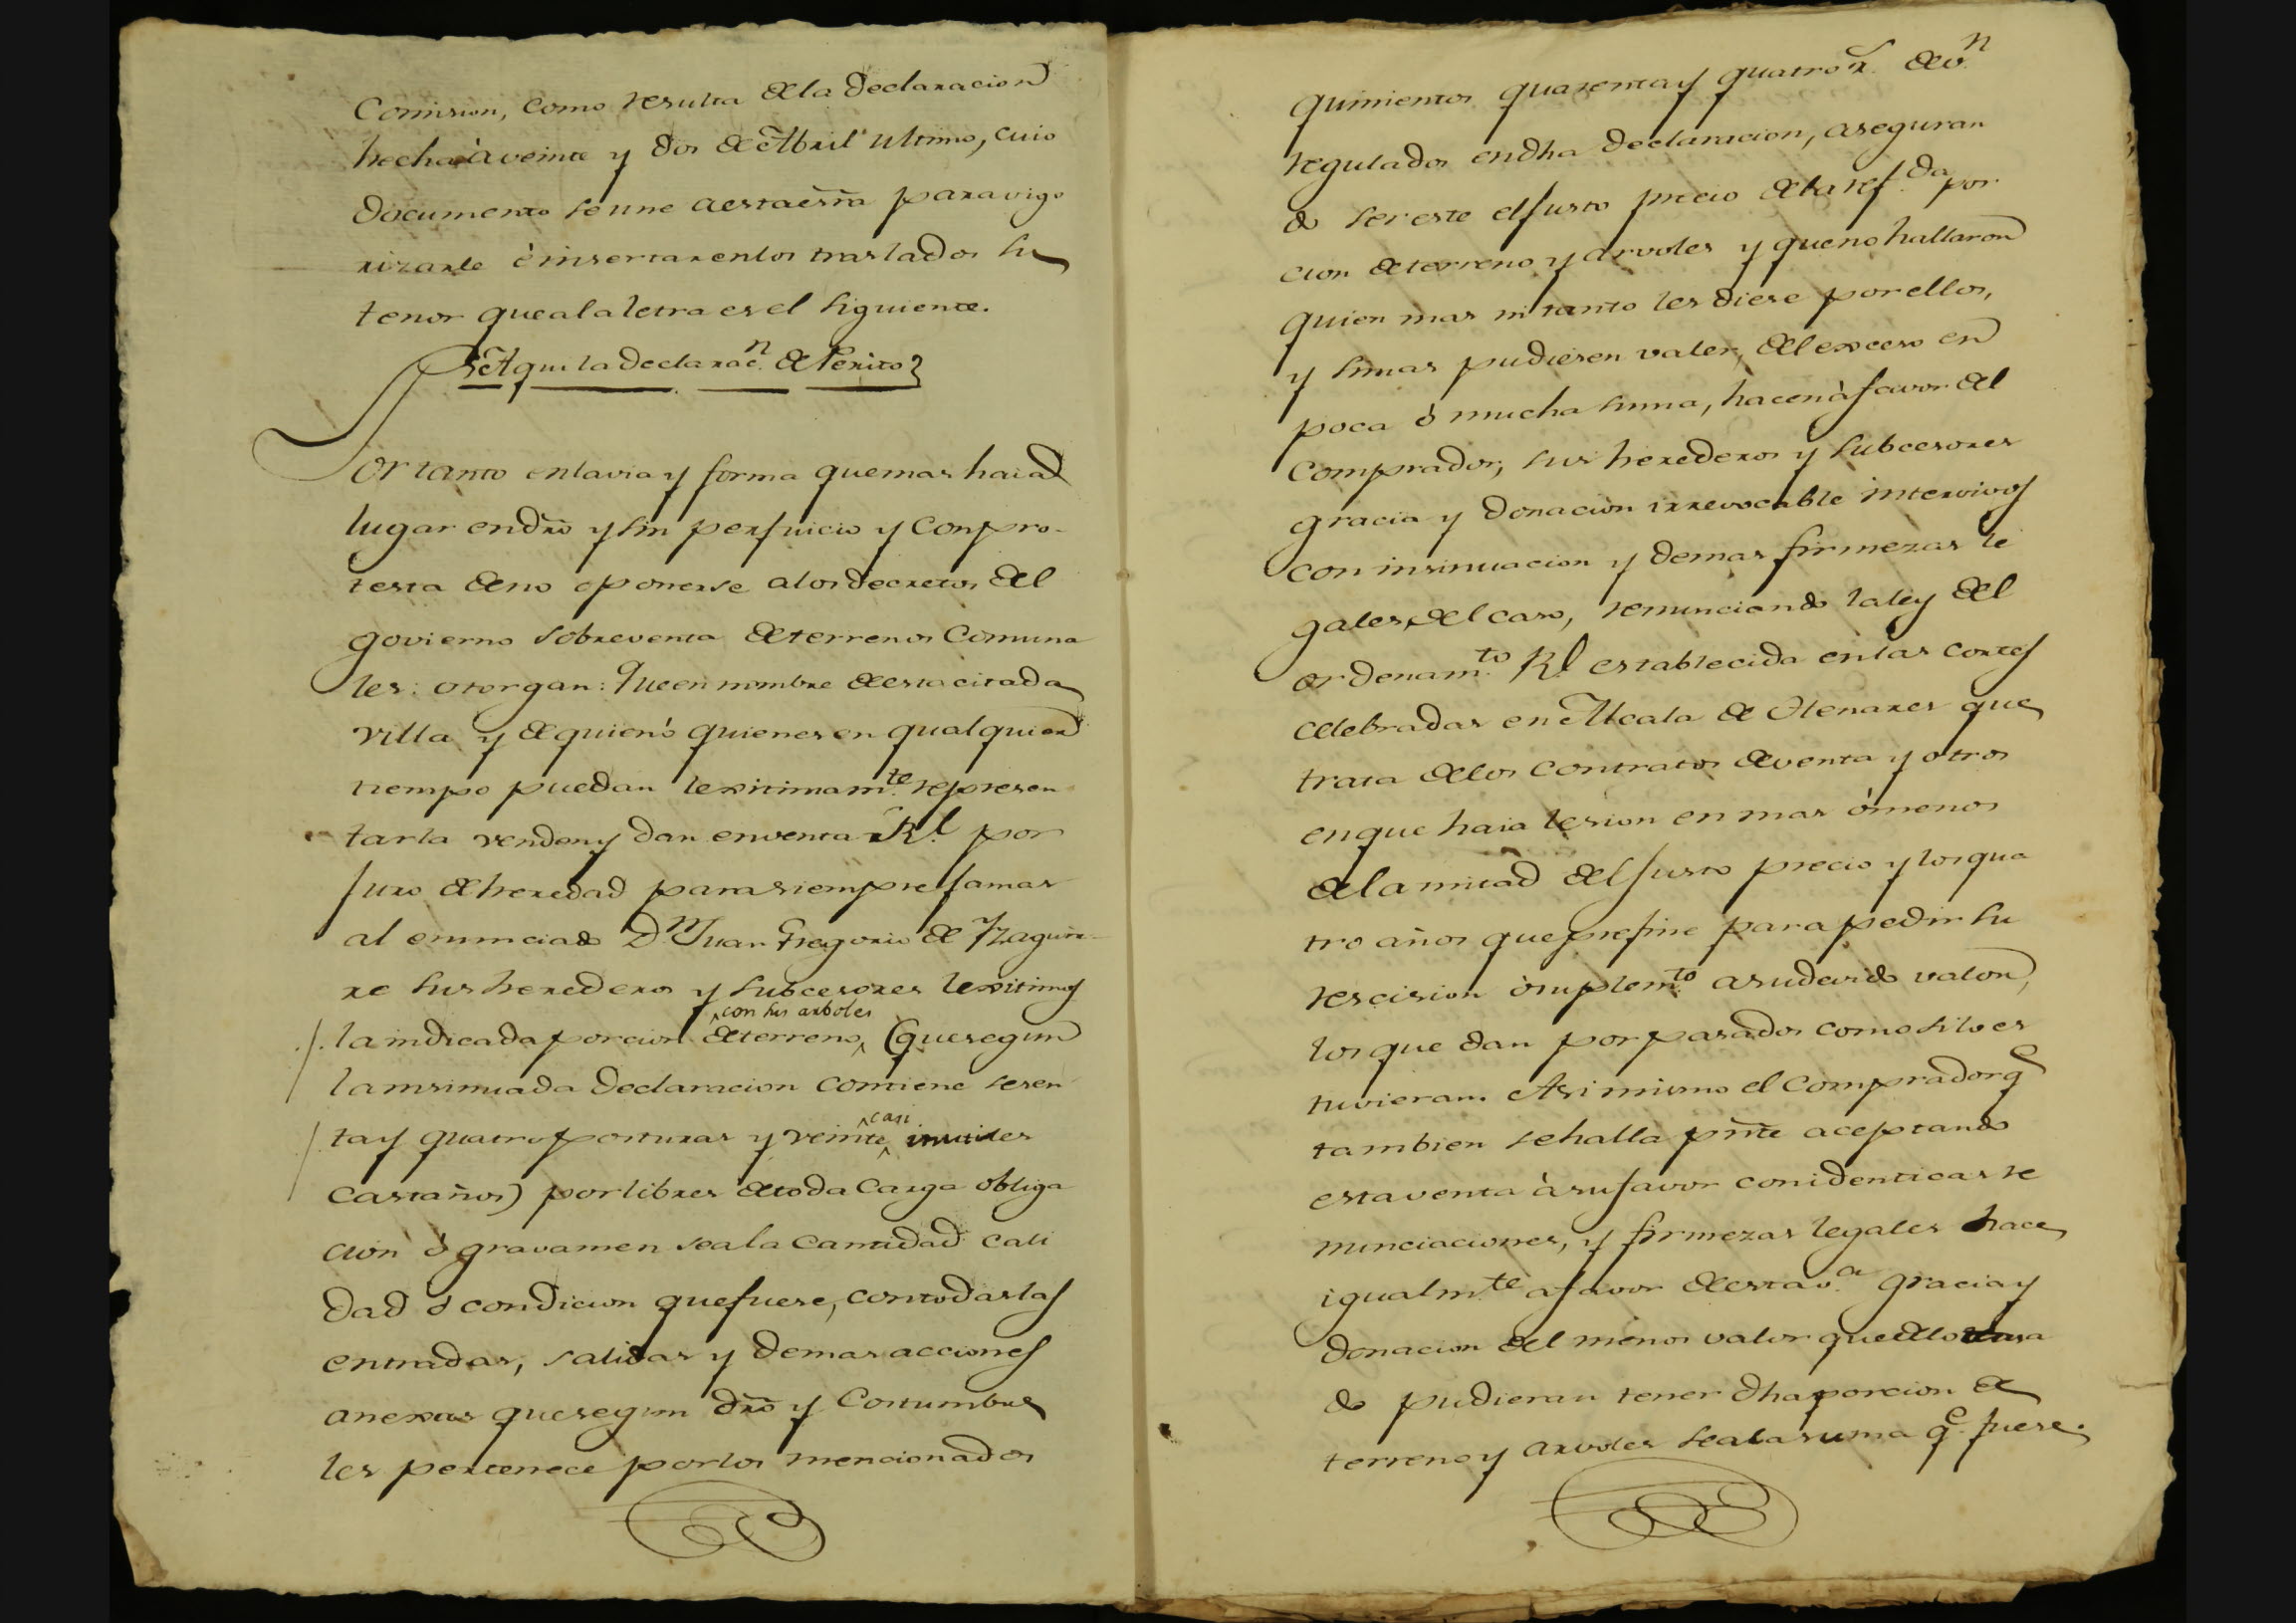 Comision, como resulta de la declaracion
hecha à veinte y dos de Abril ultimo, cuio
documento se une a esta esrã para vigo
rizarle è insertar en los traslados su
tenor que a la letra es el siguiente.
Aqui la declarac.n de Perito
Por tanto en la via y forma que mas haia
lugar en dr̃o y sin perjuicio y con pro-
testa de no oponerse a los decretos del
govierno sobre venta de terrenos Comuna
les: otorgan: Que en nombre de esta citada
villa y de quien ò quienes en qualquier
tiempo puedan lexitimam.te represen
tarla venden y dan en venta R.l por
juro de heredad para siempre jamas
al enunciado D.n Juan Gregorio de Yzaguir-
re sus herederos y subcesores lexitimos
con sus arboles
la indicada porcion de terreno, (que segun
la insinuada declaracion contiene sesen
casi
ta y quatro posturas y veinte inutiles
castaños) por libres de toda carga obliga
cion ò gravamen sea la cantidad cali
dad ò condicion que fuere, con todas las
entradas, salidas y demas acciones
anexas que segun dr̃o y costumbre
les pertenece por los mencionados
quinientos quarenta y quatro r.s de v.n
regulados en dha declaracion, aseguran
do ser este el justo precio de la ref.da por
cion de terreno y arvoles y que no hallaron
quien mas ni tanto les diese por ellos,
y si mas pudiesen valer, del exceso en
poca ò mucha suma, hacen à favor del
Comprador, sus herederos y subcesores
gracia y donacion irrevocable intervivos
con insinuacion y demas firmezas le
gales del caso, renunciando la ley del
ordenam.to R.l establecida en las cortes
celebradas en Alcala de Henares que
trata de los contratos de venta y otros
en que haia lesion en mas ò menos
de la mitad del justo precio y los qua
tro años que prefine para pedir su
rescision ò suplem.to a su devido valor,
los que dan por pasados como si lo es
tuvieran. Asimismo el Comprador q.e
tambien se halla pñte aceptando
esta venta à su favor con identicas re
nunciaciones, y firmezas legales hace
igualm.te a favor de esta v.a gracia y
donacion del menos valor que de lo tasa
do pudieran tener dha porcion de
terreno y arvoles sea la suma q.e fuere.